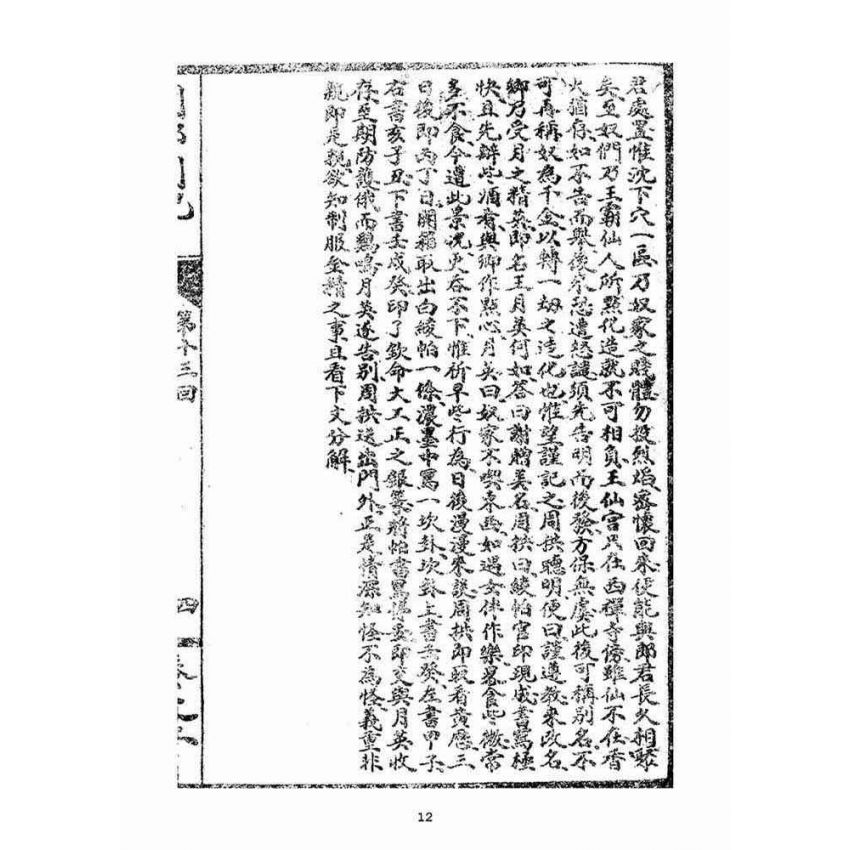 君處置惟沈下穴一區乃奴家之賤體勿投烈焰密懷回來便能與郎君長久相聚
矣至奴們乃王霸仙人所點化造就不可相負王仙宮只在西禪寺傍雖仙不在香
火猶存如不告而舉後來恐遭怒譴須先告明而後發方保無虞此後可稱別名不
可再稱奴為千金以轉一劫之造化也惟望謹記之周拱聰明便曰謹遵教來改名
鄉乃受月之精英即名王月英何如答曰謝贈美名周拱曰綾帕官印現成書寫極
快且先辦些酒肴與卿作點心月英曰奴家不喫東西如遇女伴作樂畧食些微常
多不食今遭此景況更吞不下惟祈早些行為日後漫漫來談周拱即取看黃曆三
日後即丙丁日開箱取出白綾帕一條濃墨中寫一坎卦坎卦上書壬癸左書甲子
右書亥子丑下書壬戌癸印了欽命大不正之銀篆將帕書寫停妥即交與月英收
存至期防護俄而鷄鳴月英遂告別周拱送出門外正是情深知怪不為怪義重非
親即是親欲知制服金精之事且看下文分解
第十三回
四
12